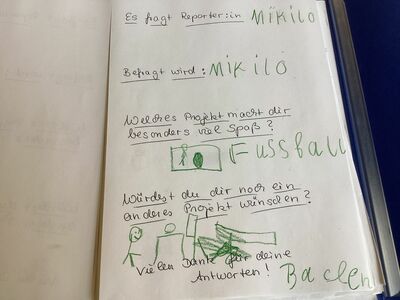 Es fragt Reporter:in Mikilo
Befragt wird: Mikilo
Welches Projekt macht dir
besonders viel Spaß?
Fussball
Würdest du dir noch ein
anderes Projekt wünschen?
Vielen Dank für deine
Antworten!
Baclen